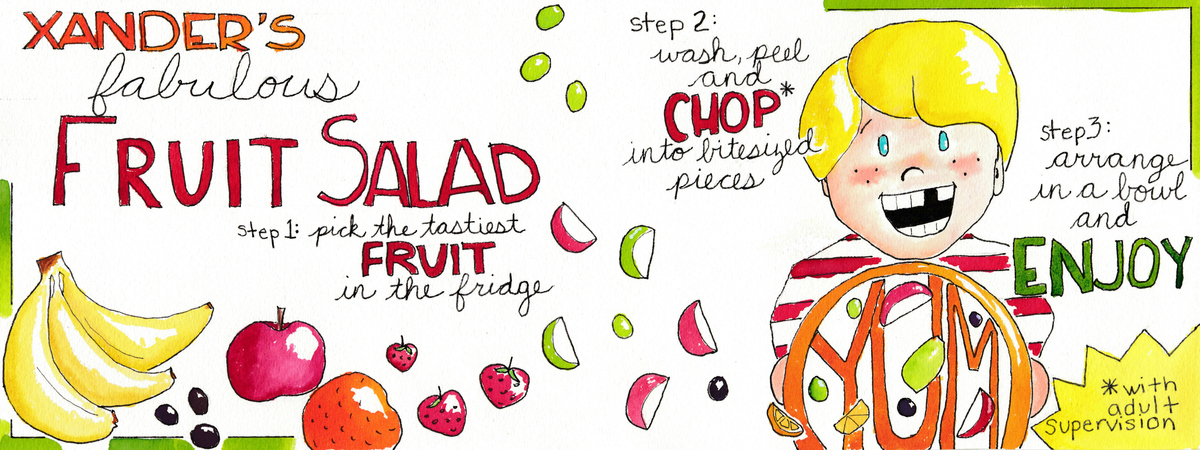 XANDER'S
fabulous
FRUIT SALAD
step 1: pick the tastiest
FRUIT
in the fridge
step 2:
wash, peel
and
CHOP*
into bitesized
pieces
step 3:
arrange
in a bowl
and
ENJOY
YUM
*with
adult
supervision